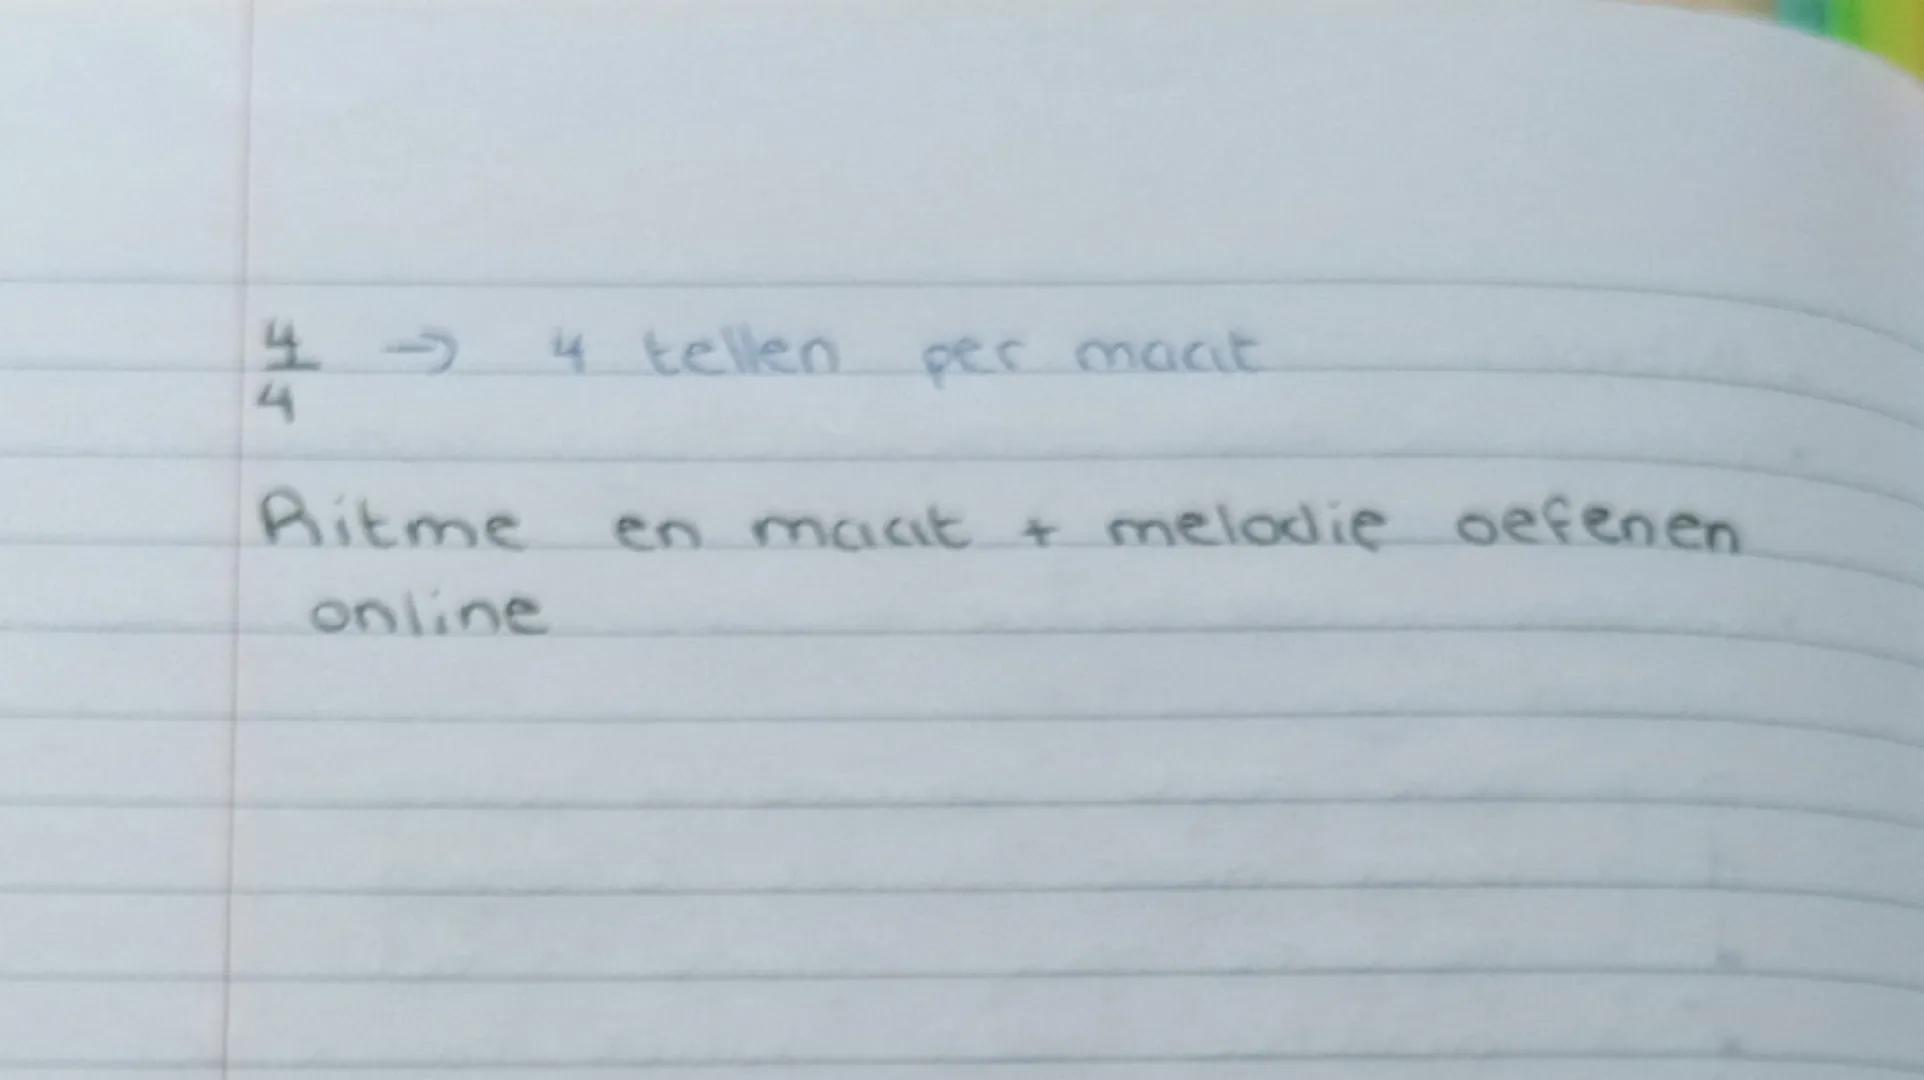 4/4 → 4 tellen per maat
Ritme en maat + melodie oefenen
online